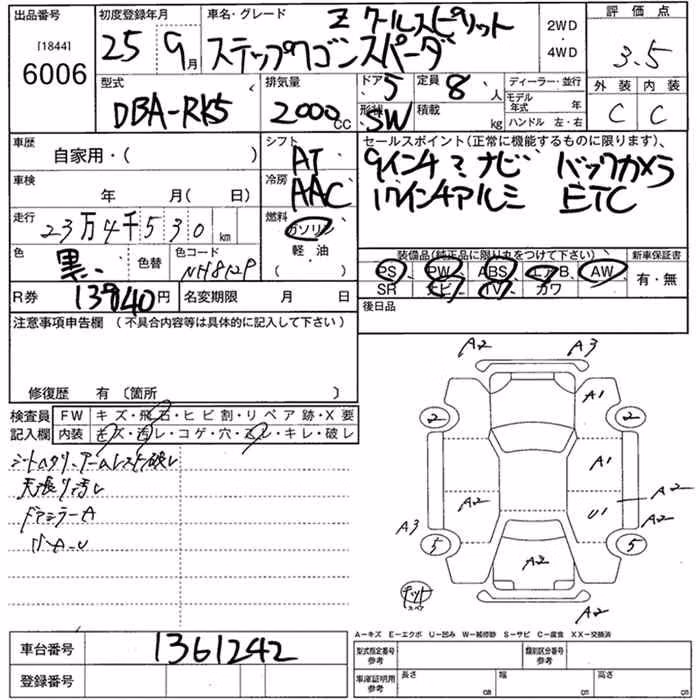 出品番号 初度登録年月 車名・グレード Z クールスピリット 2WD 評価点
[1844] 25 9月 ステップワゴン スパーダ 4WD 3.5
6006 型式 排気量 ドア 5 定員 8人 ディーラー・並行 外装 内装
DBA-RK5 2000CC 形状 SW 積載 kg モデル年式 年 C C
ハンドル 左・右
車歴 シフト セールスポイント(正常に機能するものに限ります)、
自家用・( ) AT 9インチマナビ バックカメラ
車検 冷房 AAC 17インチアルミ ETC
年 月(日)
走行 23万4千530km 燃料 ガソリン
色 黒 色替 色コード NH812P 軽油 ( )
装備品(純正品に限り丸をつけて下さい) 新車保証書
PS、PW、ABS、エアB、AW 有・無
SR ナビ TV カワ
R券 13940円 名変期限 月 日 後日品
注意事項申告欄 (不具合内容等は具体的に記入して下さい)
修復歴 有〔箇所 〕
検査員記入欄 FW キズ・飛石・ヒビ割・リペア跡・X要
内装 キズ・汚レ・コゲ・穴・スレ・キレ・破レ
天張り汚レ
ドアミラーA
A2 A3
A1
2 2
A1
A2 U1 A2
A3 A2
5 5
A2
A2
A-キズ E-エクボ U-凹み W-補修跡 S-サビ C-腐食 XX-交換済
車台番号 1361242 型式指定番号 参考 類別区分番号 参考
登録番号 車庫証明用 参考 長さ cm 幅 cm 高さ cm